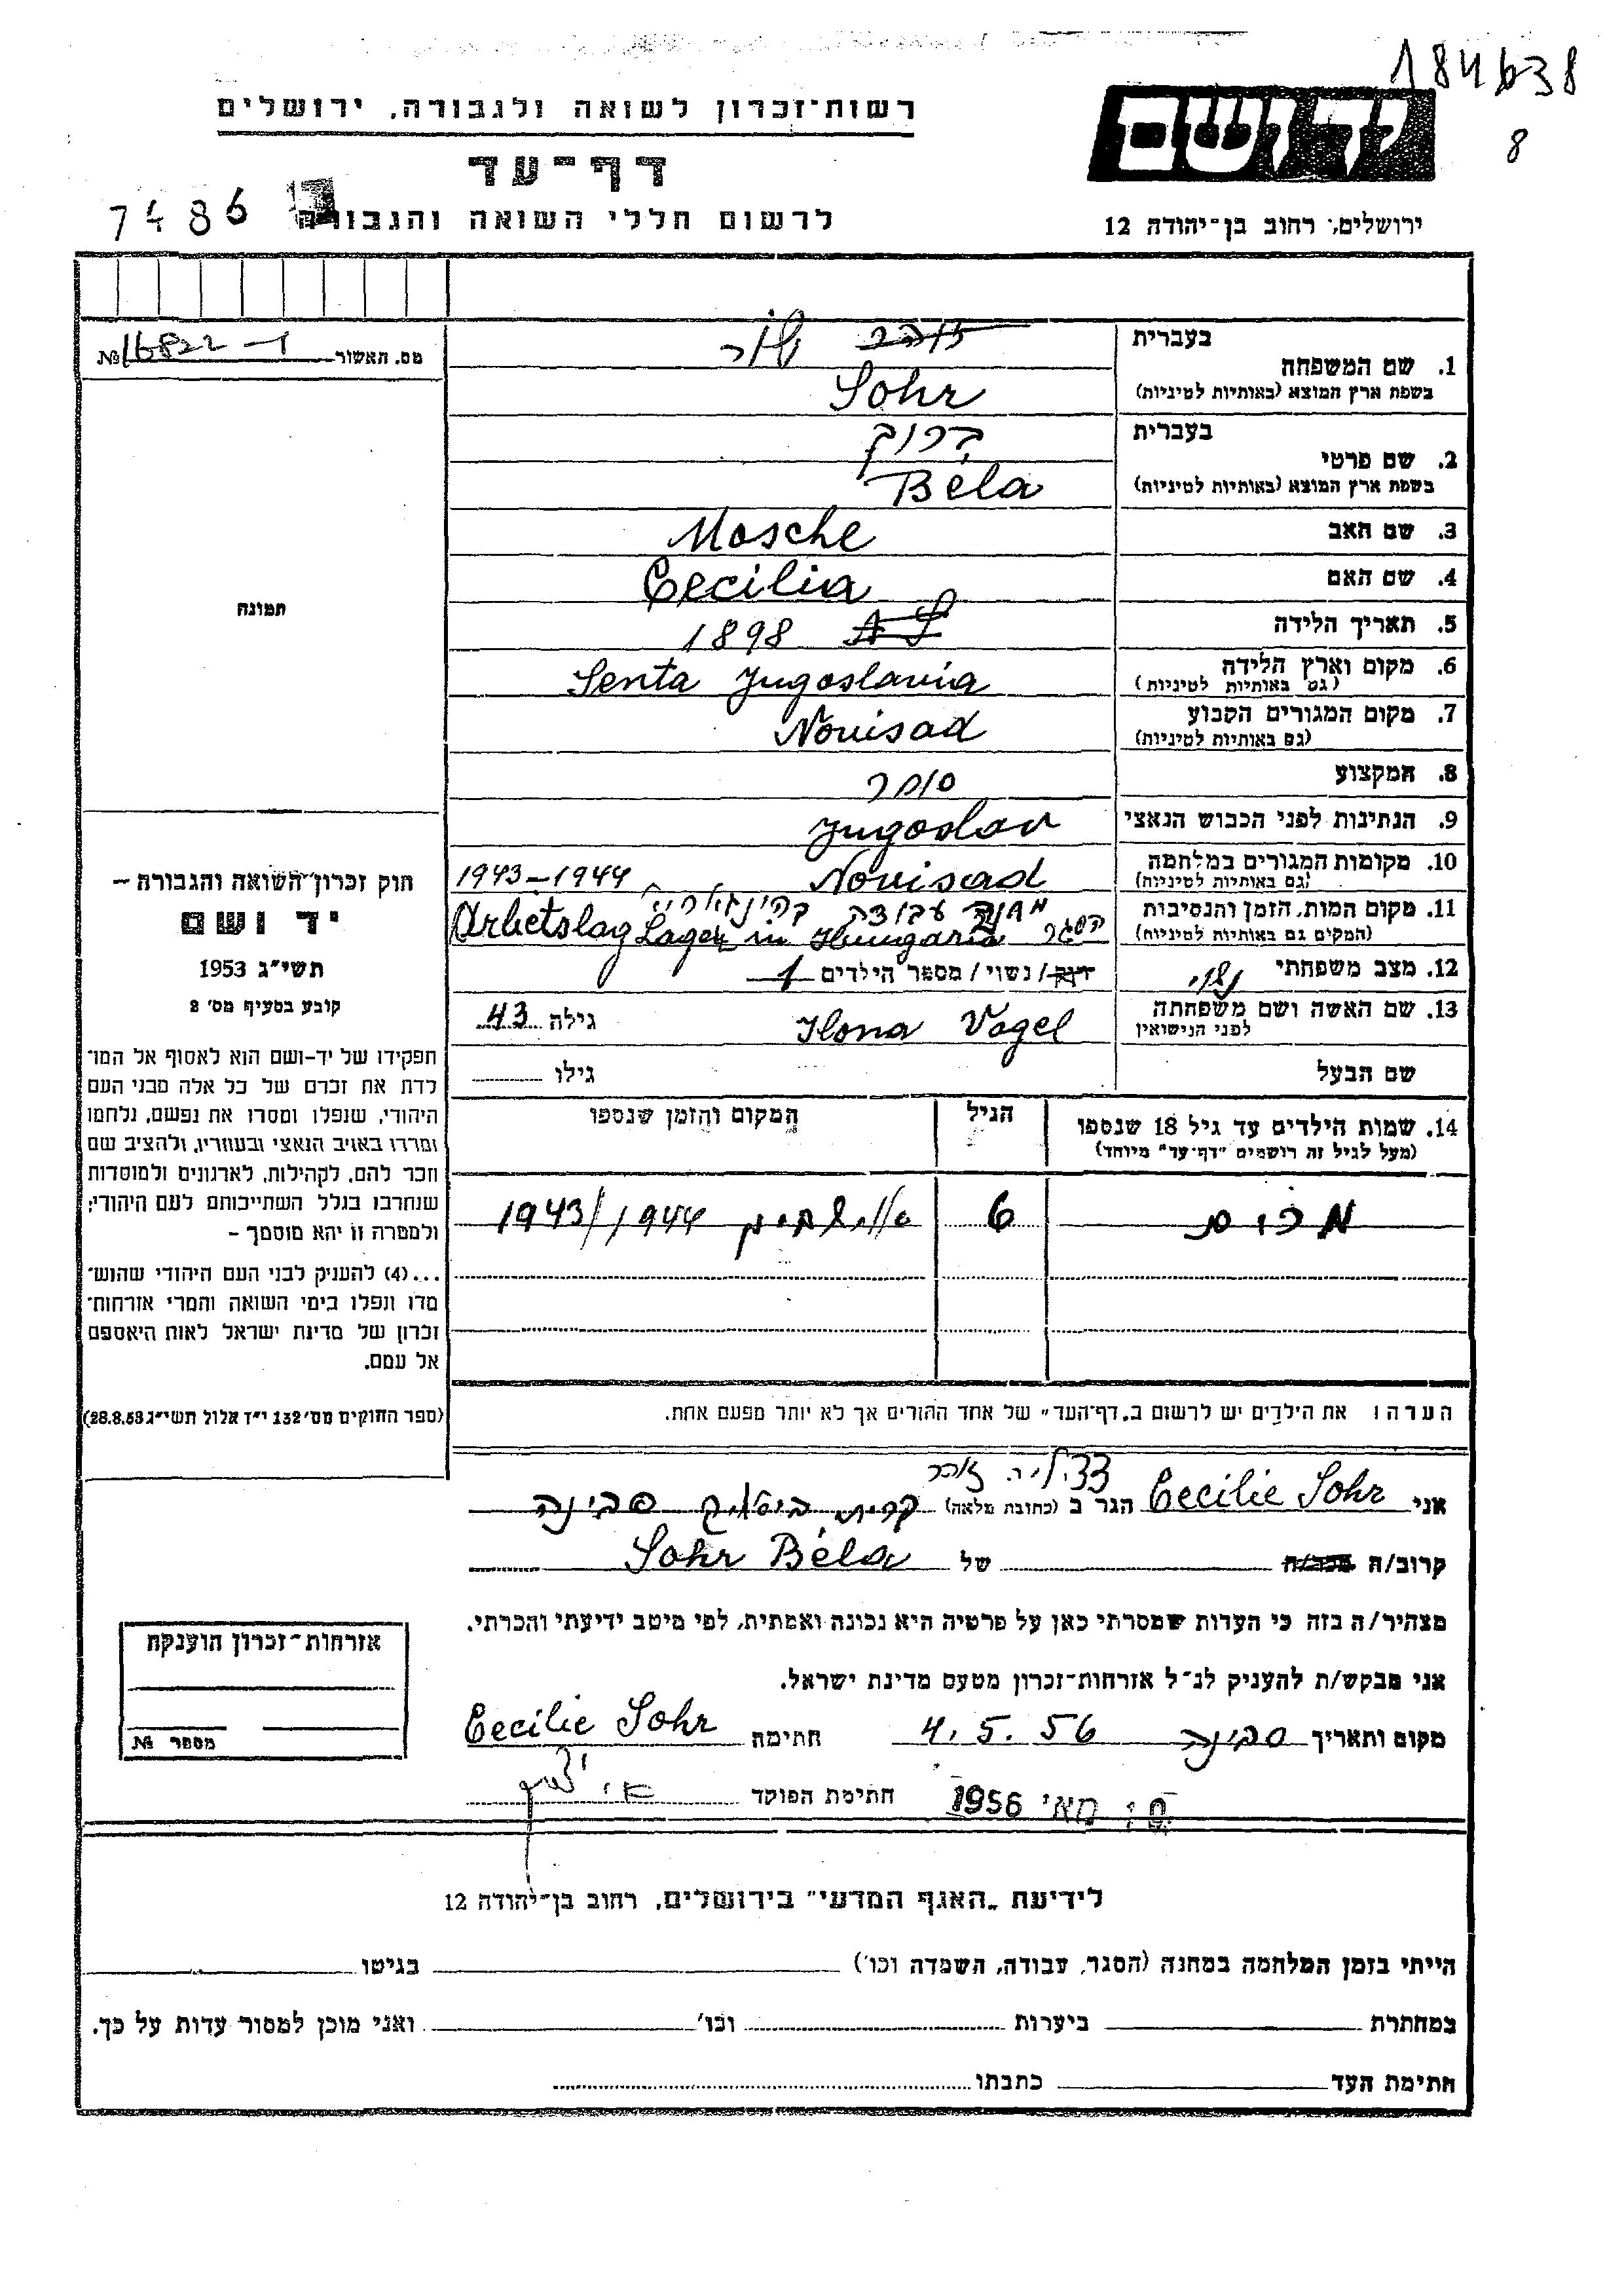 184638
8
רשות-זכרון לשואה ולגבורה, ירושלים
דף-עד
לרשום חללי השואה והגבורה
7486
יד ושם
ירושלים, רחוב בן-יהודה 12
מס. תאשור № 16822-1
תמונה
חוק זכרון השואה והגבורה –
יד ושם
תשי"ג 1953
קובע בסעיף מס' 2
תפקידו של יד-ושם הוא לאסוף אל המו־
לדת את זכרם של כל אלה מבני העם
היהודי, שנפלו ומסרו את נפשם, נלחמו
ומרדו באויב הנאצי ובעוזריו, ולהציב שם
וזכר להם, לקהילות, לארגונים ולמוסדות
שנחרבו בגלל השתייכותם לעם היהודי;
ולמטרה זו יהא מוסמך –
...(4) להעניק לבני העם היהודי שהוש־
מדו ונפלו בימי השואה והמרי אזרחות־
זכרון של מדינת ישראל לאות היאספם
אל עמם.
(ספר החוקים מס' 132 י"ד אלול תשי"ג 28.8.53)
בעברית שור
1. שם המשפחה
בשפת ארץ המוצא (באותיות לטיניות) Sohr
בעברית ברוך
2. שם פרטי
בשפת ארץ המוצא (באותיות לטיניות) Béla
3. שם האב Mosche
4. שם האם Cecilia
5. תאריך הלידה 1898
6. מקום וארץ הלידה Senta Jugoslavia
(גם באותיות לטיניות)
7. מקום המגורים הקבוע Novisad
(גם באותיות לטיניות)
8. המקצוע סוחר
9. הנתינות לפני הכבוש הנאצי Jugoslav
10. מקומות המגורים במלחמה Novisad 1943-1944
(גם באותיות לטיניות)
11. מקום המות, הזמן והנסיבות מחנה עבודה
(המקום גם באותיות לטיניות) הסגר Arbetslag Lager in Hungaria
12. מצב משפחתי נשוי רווק/נשוי/מספר הילדים 1
13. שם האשה ושם משפחתה Ilona Vogel גילה 43
לפני הנישואין
שם הבעל גילו
14. שמות הילדים עד גיל 18 שנספו הגיל המקום והזמן שנספו
(מעל לגיל זה רושמים "דף-עד" מיוחד)
6 אושביץ 1943/1944
הערה: את הילדים יש לרשום ב"דף-העד" של אחד ההורים אך לא יותר מפעם אחת.
צציליה זוהר
אני Cecilie Sohr הגר ב (כתובת מלאה) קרית ביאליק סבינה
קרוב/ה מכר/ה של Sohr Béla
מצהיר/ה בזה כי העדות שמסרתי כאן על פרטיה היא נכונה ואמתית, לפי מיטב ידיעתי והכרתי.
אני מבקש/ת להעניק לנ"ל אזרחות-זכרון מטעם מדינת ישראל.
מקום ותאריך סבינה 4.5.56 חתימה Cecilie Sohr
מאי 1956 חתימת הפוקד
אזרחות-זכרון הוענקה
מספר №
לידיעת "האגף המדעי" בירושלים, רחוב בן-יהודה 12
הייתי בזמן המלחמה במחנה (הסגר, עבודה, השמדה וכו') בגיטו
במחתרת ביערות וכו' ואני מוכן למסור עדות על כך.
חתימת העד כתבתו